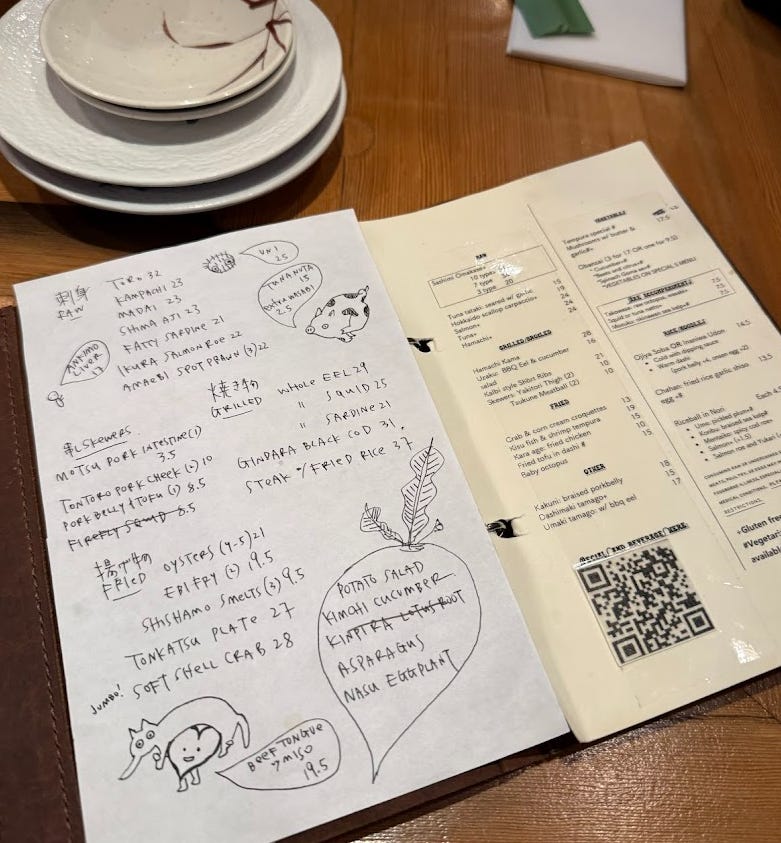 刺身
RAW
TORO 32
KAMPACHI 23
MADAI 23
SHIMA AJI 23
FATTY SARDINE 21
IKURA SALMON ROE 22
AMAEBI SPOT PRAWN (3) 22
UNI
25
TUNA NUTA
15
EXTRA WASABI
2.5
ANKIMO
LIVER
17
焼き物
GRILLED
WHOLE EEL 29
" SQUID 25
" SARDINE 21
GINDARA BLACK COD 31.
STEAK w/FRIED RICE 37
串 SKEWERS
MOTSU PORK INTESTINE (1)
3.5
TONTORO PORK CHEEK (2) 10
PORK BELLY & TOFU (1) 8.5
FIREFLY SQUID 8.5
揚げ物
FRIED
OYSTERS (4-5) 21
EBI FRY (2) 19.5
SHISHAMO SMELTS (3) 9.5
TONKATSU PLATE 27
JUMBO! SOFT SHELL CRAB 28
BEEF TONGUE
MISO
19.5
POTATO SALAD
KIMCHI CUCUMBER
KINPIRA LOTUS ROOT
ASPARAGUS
NASU EGGPLANT
RAW
Sashimi Omakase+
10 type
7 type
3 type 20
Tuna tataki: seared w/ garlic 15
Hokkaido scallop carpaccio+ 19
Salmon+ 24
Tuna+ 24
Hamachi+ 24
GRILLED/BROILED
Hamachi Kama 28
Uzaku: BBQ Eel & cucumber 16
salad
Kalbi style Shibs Ribs 21
Skewers: Yakitori Thigh (2) 10
Tsukune Meatball (2) 10
FRIED
Crab & corn cream croquettes 13
Kisu fish & shrimp tempura 19
Kara age: fried chicken 15
Fried tofu in dashi # 10
Baby octopus 15
OTHER
Kakuni: braised porkbelly 18
Dashimaki tamago+ 15
Umaki tamago: w/ bbq eel 17
SPECIAL AND BEVERAGE HERE
VEGETABLES
Tempura special # 17.5
Mushrooms w/ butter &
garlic#
Obanzai (3 for 17 OR one for 9.5)
• Cucumber#
*VEGETABLES ON SPECIALS MENU
RICE/NOODLES
Ojiya Soba OR Inaniwa Udon 14.5
• Cold with dipping sauce
• Warm dashi
(pork belly +4, onsen egg +2)
Chahan: fried rice garlic shiso 13.5
egg +#
Riceball in Nori Each
• Ume: pickled plum#
• Mentaiko: spicy cod roe
• Salmon (+1.5)
RESTRICTIONS
+Gluten free
#Vegetari
available